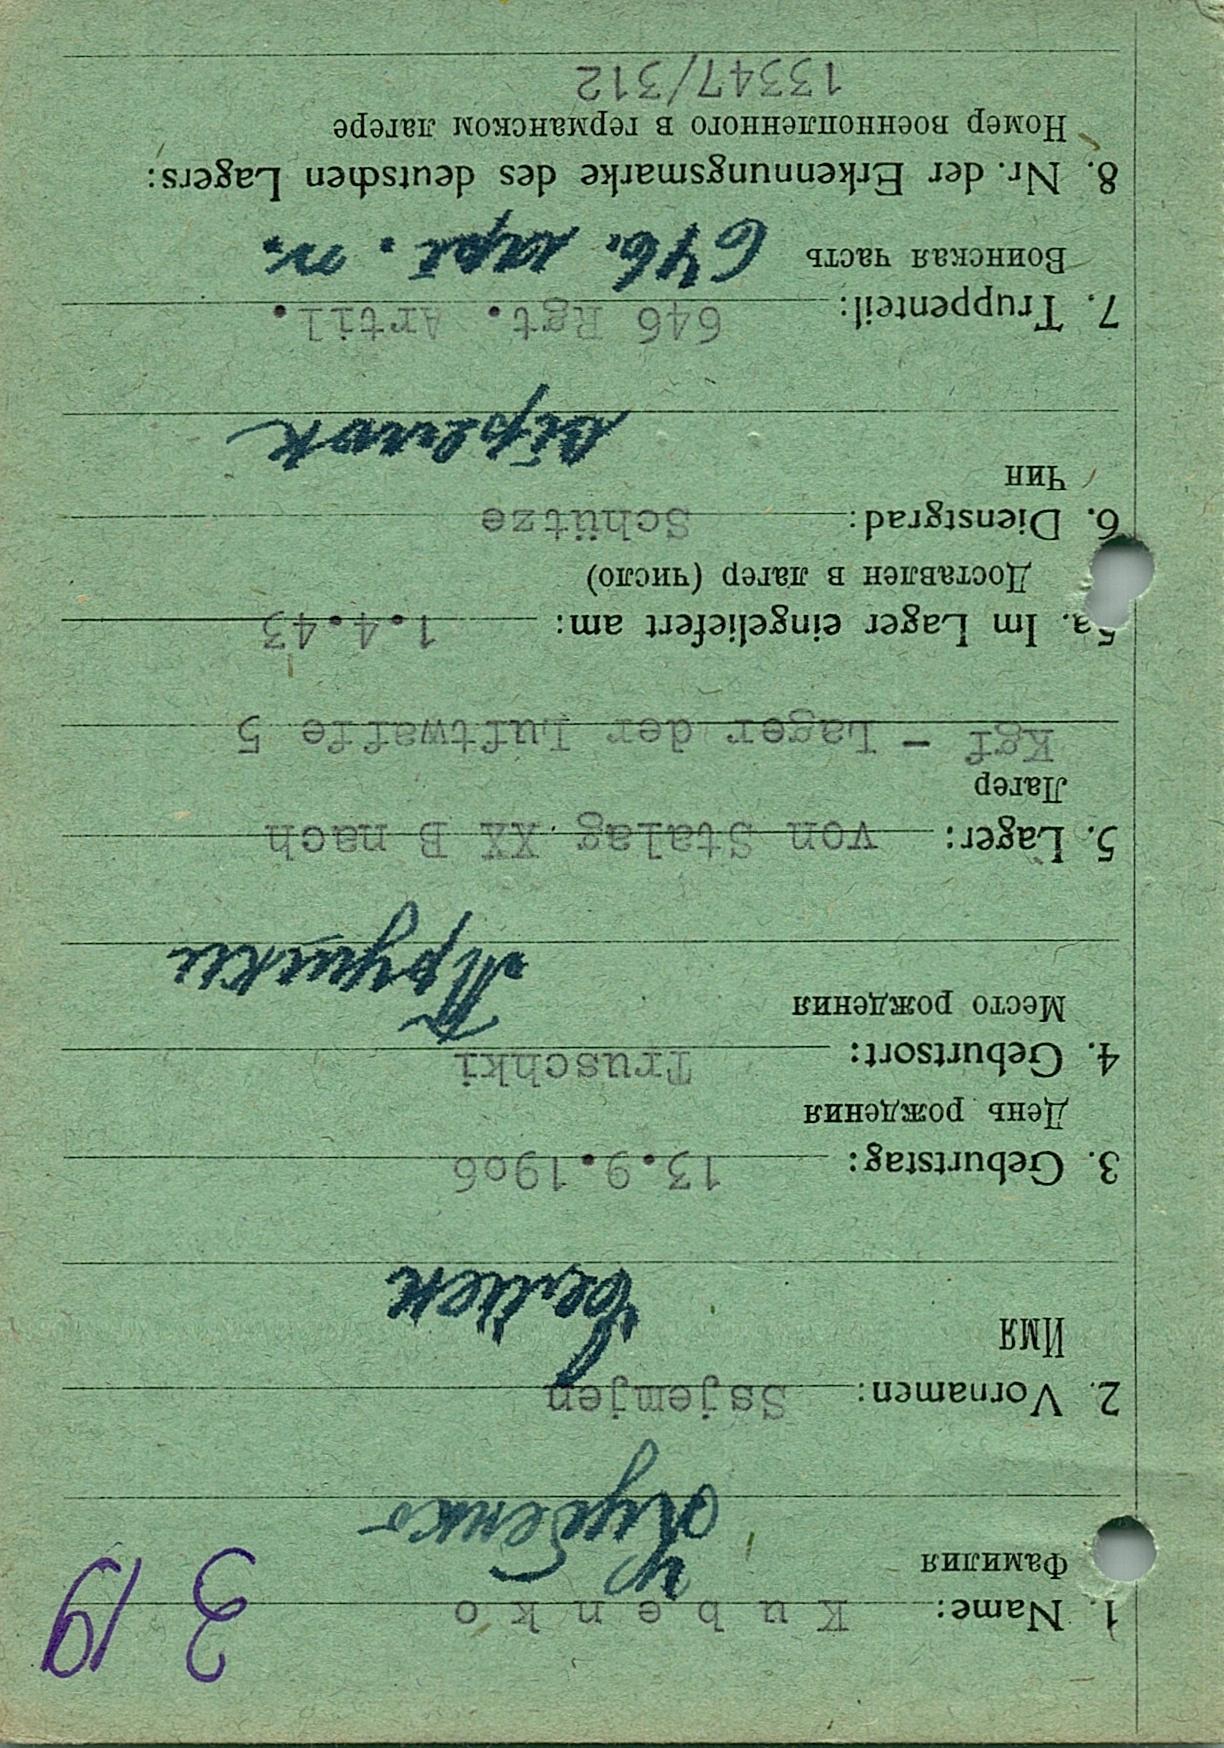 3 19
1. Name: Kubenko
Фамилия Кубенко
2. Vornamen: Ssjemjen
Имя Семен
3. Geburtstag: 13.9.1906
День рождения
4. Geburtsort: Truschki
Место рождения Трушки
5. Lager: von Stalag XX B nach
Лагер
Kgf - Lager der Luftwaffe 5
5a. Im Lager eingeliefert am: 1.4.43
Доставлен в лагер (число)
6. Dienstgrad: Schütze
Чин
стрелок
7. Truppenteil: 646 Rgt. Artil.
Воинская часть 646. арт. п.
8. Nr. der Erkennungsmarke des deutschen Lagers:
Номер военнопленного в германском лагере
13347/312